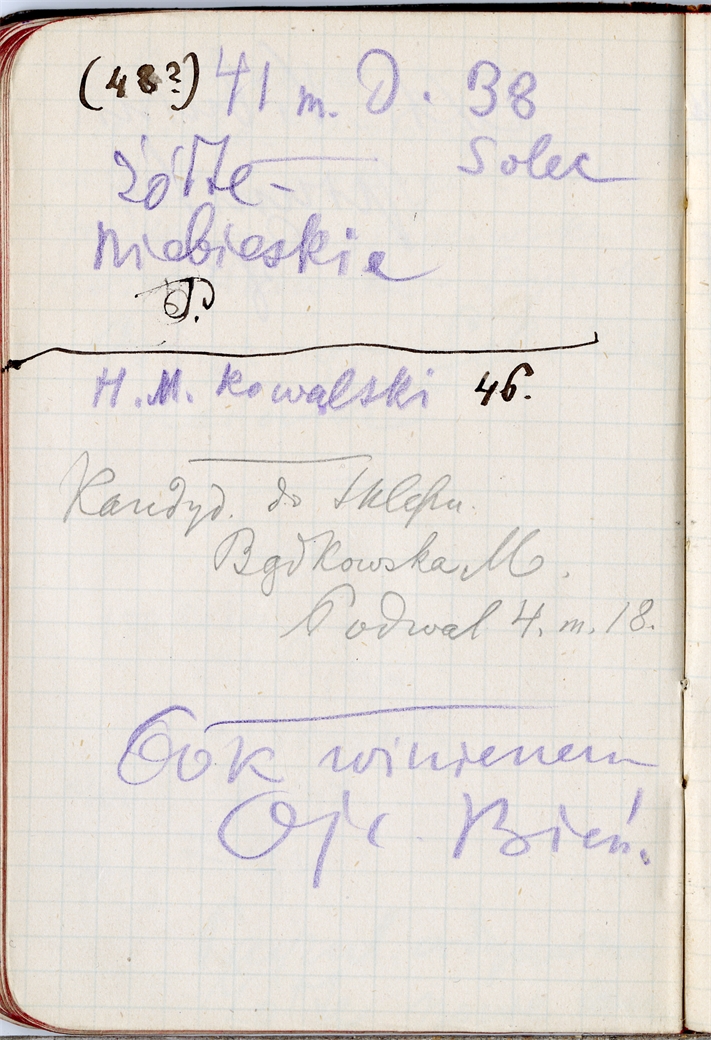 (48?) 41 m. D. 38
Solec
żółte-
niebieskie
P.
H. M. Kowalski 46.
Kandyd. do Sklepu.
Bądkowska M.
Podwal 4. m. 18.
winienem
Ojc. Bień.